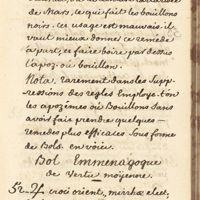 de Mars, ce qui fait les bouillons
noirs. cet usage est mauvais. il
vaut mieux donner ce remede
à part, et faire boire par dessus
l'apoz. ou bouillon.
Nota. rarement dans les Supp-
ressions des regles Employe-t'on
les apozèmes où Bouillons Sans
avoir fait prendre quelques
remedes plus efficaces Sous forme
de Bols. en voici.
Bol Emmenagogue
de Vertu moyenne.
croci orient. mirrhæ elect.